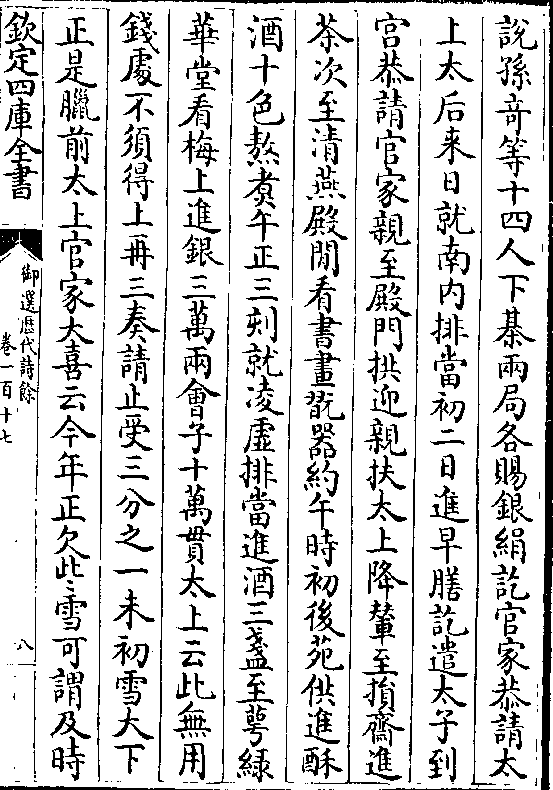 說孫竒等十四人下棊兩局各賜銀絹訖官家恭請太
上太后来日就南内排當初二日進早膳訖遣太子到
宫恭請官家親至殿門拱迎親扶太上降輦至損齋進
茶次至清燕殿閒看書畫翫器約午時初後苑供進酥
酒十色熬煮午正三刻就凌虚排當進酒三盞至萼緑
華堂看梅上進銀三萬兩會子十萬貫太上云此無用
錢處不須得上再三奏請止受三分之一未初雪大下
正是臘前太上官家大喜云今年正欠些雪可謂及時
欽定四庫全書
御選歴代詩餘
卷一百十七
八